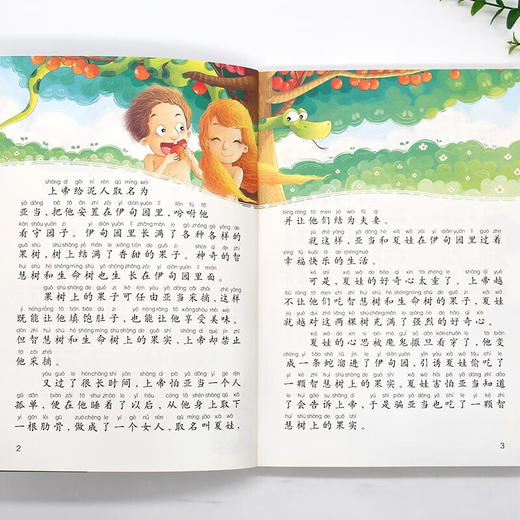 上帝给泥人取名为
亚当，把他安置在伊甸园里，吩咐他
看守园子。伊甸园里长满了各种各样的
果树，树上结满了香甜的果子。神奇的智
慧树和生命树也生长在伊甸园里面。
果树上的果子可任由亚当采摘，这样
既能让他填饱肚子，也能让他享受美味，
但智慧树和生命树上的果实，上帝却禁止
他采摘。
又过了很长时间，上帝怕亚当一个人
孤单，便在他睡着了以后，从他身上取下
一根肋骨，做成了一个女人，取名叫夏娃，
2
并让他们结为夫妻。
就这样，亚当和夏娃在伊甸园里过着
幸福快乐的生活。
可是，夏娃的好奇心太重了。上帝越
不让他们吃智慧树和生命树的果子，夏娃
就越对这两棵树充满了强烈的好奇心。
夏娃的心思被魔鬼撒旦看穿了，他变
成一条蛇溜进了伊甸园，引诱夏娃偷吃了
一颗智慧树上的果实。夏娃害怕亚当知道
了会告诉上帝，于是骗亚当也吃了一颗智
慧树上的果实。
3